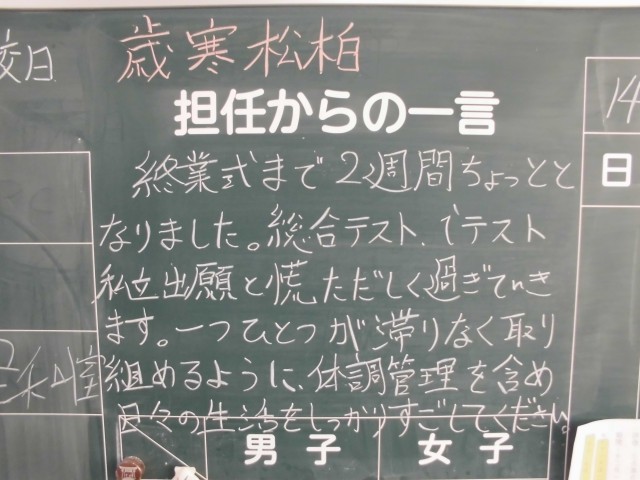 校日
歳寒松柏
担任からの一言
14
日
終業式まで2週間ちょっとと
なりました。総合テスト、iテスト
私立出願と慌ただしく過ぎていき
ます。一つひとつが滞りなく取り
組めるように、体調管理を含め
日々の生活をしっかりすごしてください。
男子
女子